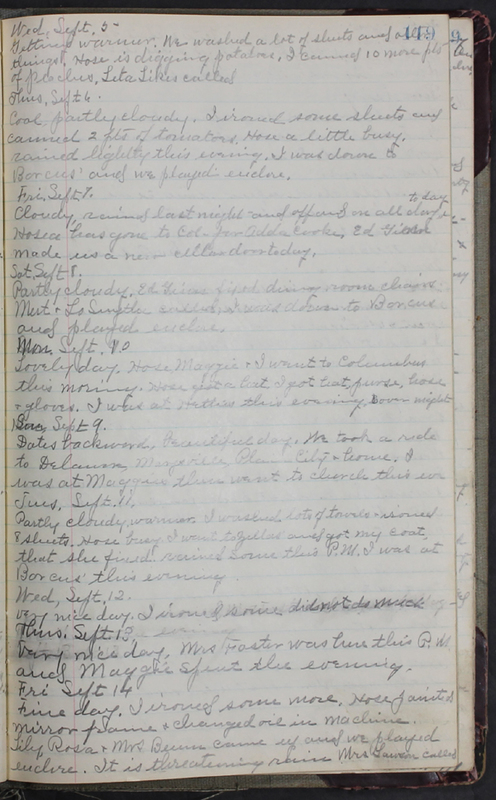 Wed, Sept. 5-
Getting warmer. We washed a lot of sheets and other 119
things, Hose is digging potatoes, I canned 10 more pts
of peaches, Leta Sikes called
Thus, Sept 6.
Cool partly cloudy. I ironed some sheets and
canned 2 pts of tomatoes. Hose a little busy.
rained lightly this evening. I was down to
Borcus' and we played euclire.
Fri. Sept 7.
Cloudy, rained last night and off and on all day
to day
Hosea has gone to Col- Adda Cooke, Ed
made us a new cellardoor today.
Sat, Sept 8.
Partly cloudy. Ed fixed dining room chairs
Mert. & Lo called, I was down to Borcus
and played euclire.
Mon, Sept. 10
Lovely day. Hose, Maggie & I went to Columbus
this morning. Hose got a hat I got hat, purse, hose
& gloves. I was at this evening. over night
Sept 9.
Dates backward, Beautiful day. We took a ride
to Delaware, Marysville, Plain City & home. I
was at Maggies then went to church this eve
Tues, Sept. 11.
Partly cloudy, warmer. I washed lots of towels & ironed
8 sheets. Hose busy. I went to and got my coat,
that she fixed. rained some this P.M. I was at
Borcus' this evening
Wed, Sept, 12.
very nice day. I ironed some, did not do much
Thus. Sept 13
Very nice day, Mrs Foster was here this P.M.
and Maggie spent the evening.
Fri Sept 14
Fine day. I ironed some more. Hose painted
mirror frame & changed oil in machine.
Lily, Rosa & Mrs Bunn came up and we played
euclire. It is threatening rain Mrs called